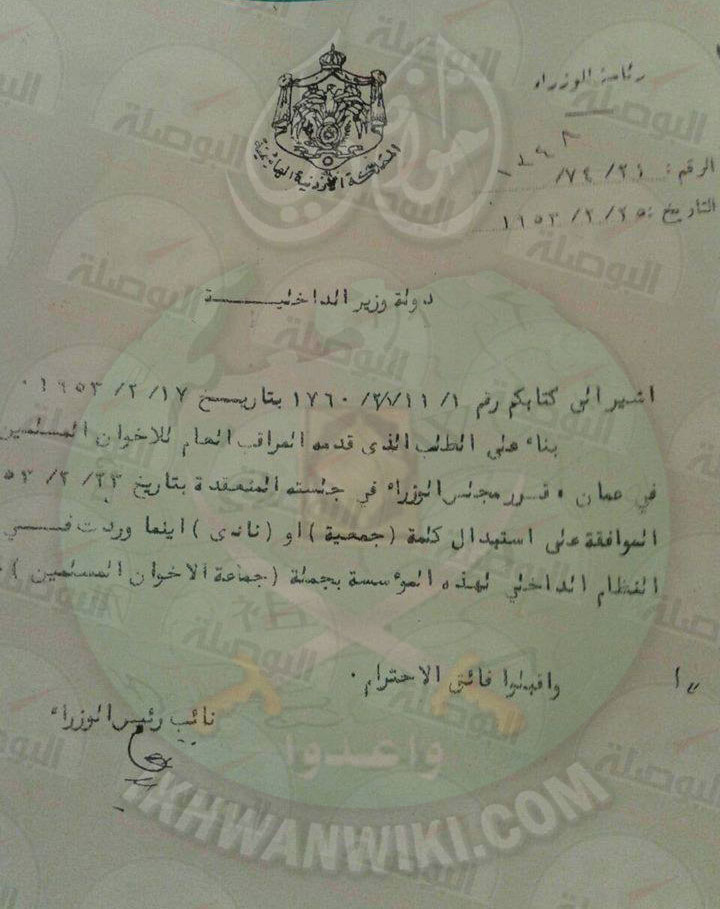 رئاسة الوزراء
المملكة الأردنية الهاشمية
الرقم : ٧٤/٢١/
التاريخ : ١٩٥٣/٢/٢٥
دولة وزير الداخليـــــة
اشير الى كتابكم رقم ١٧٦٠ بتاريـــخ ١٩٥٣/٢/١٧ .
بناء على الطلب الذى قدمه المراقب العام للاخوان المسلمين
في عمان ، قرر مجلس الوزراء في جلسته المنعقدة بتاريخ ٢٣ /٢ /٥٣
الموافقة على استبدال كلمة (جمعية) او (نادى) اينما وردت فـــي
النظام الداخلي لهذه المؤسسة بجملة (جماعة الاخوان المسلمين)
واقبلوا فائق الاحترام .
نائب رئيس الوزراء
البوصلة
وأعدوا
IKHWANWIKI.COM